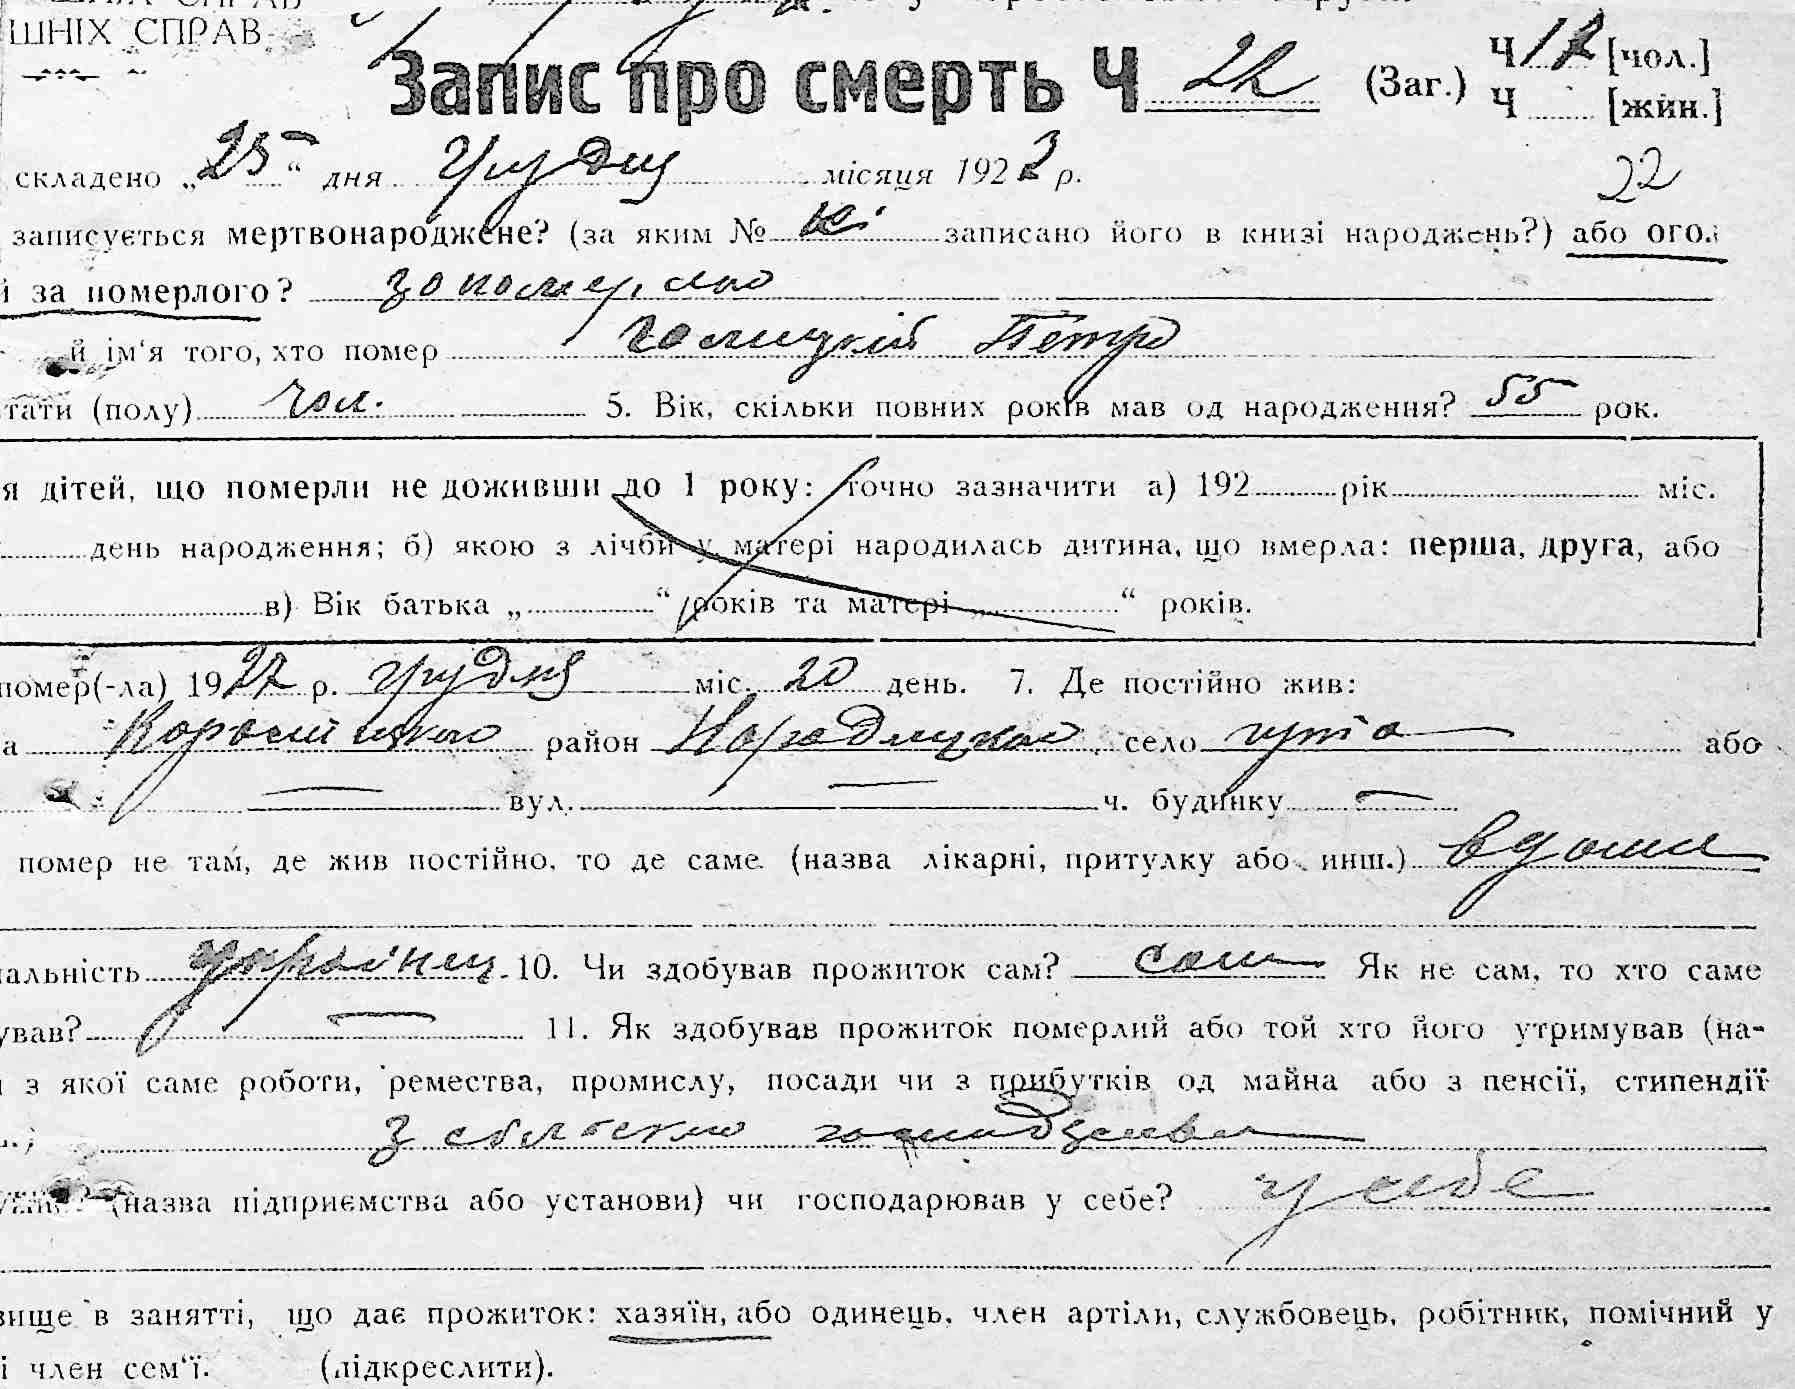 ШНІХ СПРАВ
Запис про смерть Ч 22 (Заг.) Ч 12 [чол.]
Ч [жін.]
складено „25“ дня Грудня місяця 192 р.
22
записується мертвонароджене? (за яким № записано його в книзі народжень?) або ого
й за померлого? за померлого
й ім'я того, хто помер Галицкій Петро
тати (полу) чол. 5. Вік, скільки повних років мав од народження? 55 рок.
я дітей, що померли не доживши до 1 року: точно зазначити а) 192 рік міс.
день народження; б) якою з лічби у матері народилась дитина, що вмерла: перша, друга, або
в) Вік батька „ “ років та матері „ “ років.
помер(-ла) 1927 р. грудня міс. 20 день. 7. Де постійно жив:
а район Народицкого, село гута або
вул. ч. будинку
помер не там, де жив постійно, то де саме (назва лікарні, притулку або инш.) вдома
альність українец 10. Чи здобував прожиток сам? сам Як не сам, то хто саме
ував? 11. Як здобував прожиток померлий або той хто його утримував (на-
з якої саме роботи, ремества, промислу, посади чи з прибутків од майна або з пенсії, стипендії
з сільского
(назва підприємства або установи) чи господарював у себе? у себе
вище в занятті, що дає прожиток: хазяїн, або одинець, член артіли, службовець, робітник, помічний у
і член сем'ї. (підкреслити).